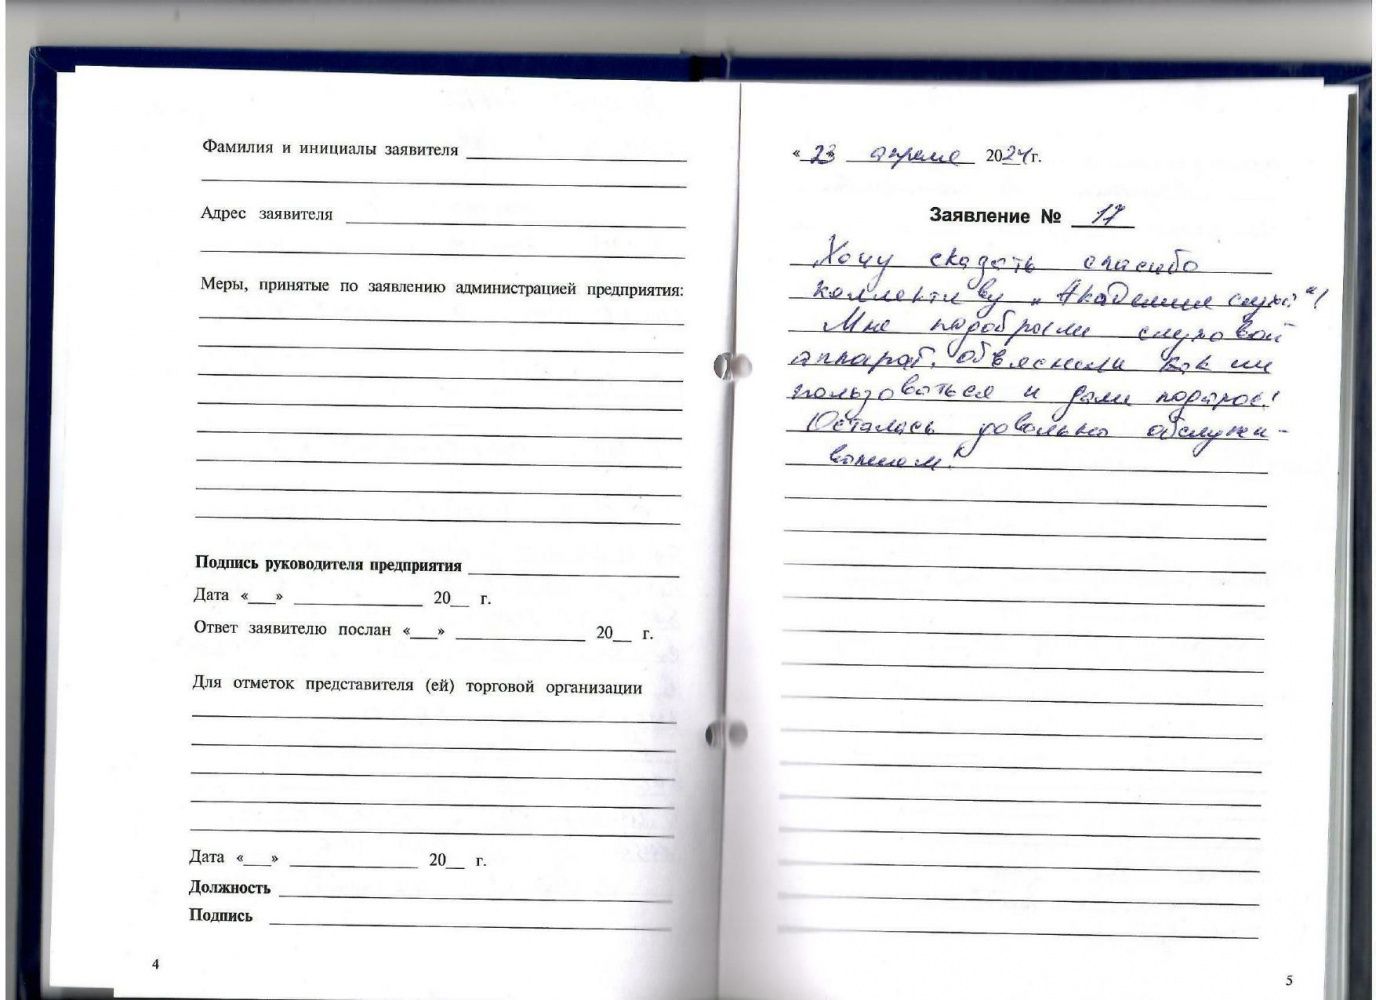 Фамилия и инициалы заявителя
Адрес заявителя
Меры, принятые по заявлению администрацией предприятия:
Подпись руководителя предприятия
Дата «___» ____________ 20__ г.
Ответ заявителю послан «___» ____________ 20__ г.
Для отметок представителя (ей) торговой организации
Дата «___» ____________ 20__ г.
Должность
Подпись
4
«23» апреля 2024г.
Заявление № 17
Хочу сказать спасибо
коллективу „Академия слуха“!
Мне подобрали слуховой
аппарат, объяснили как им
пользоваться и дали подарок!
Осталась довольна обслужи-
ванием!
5